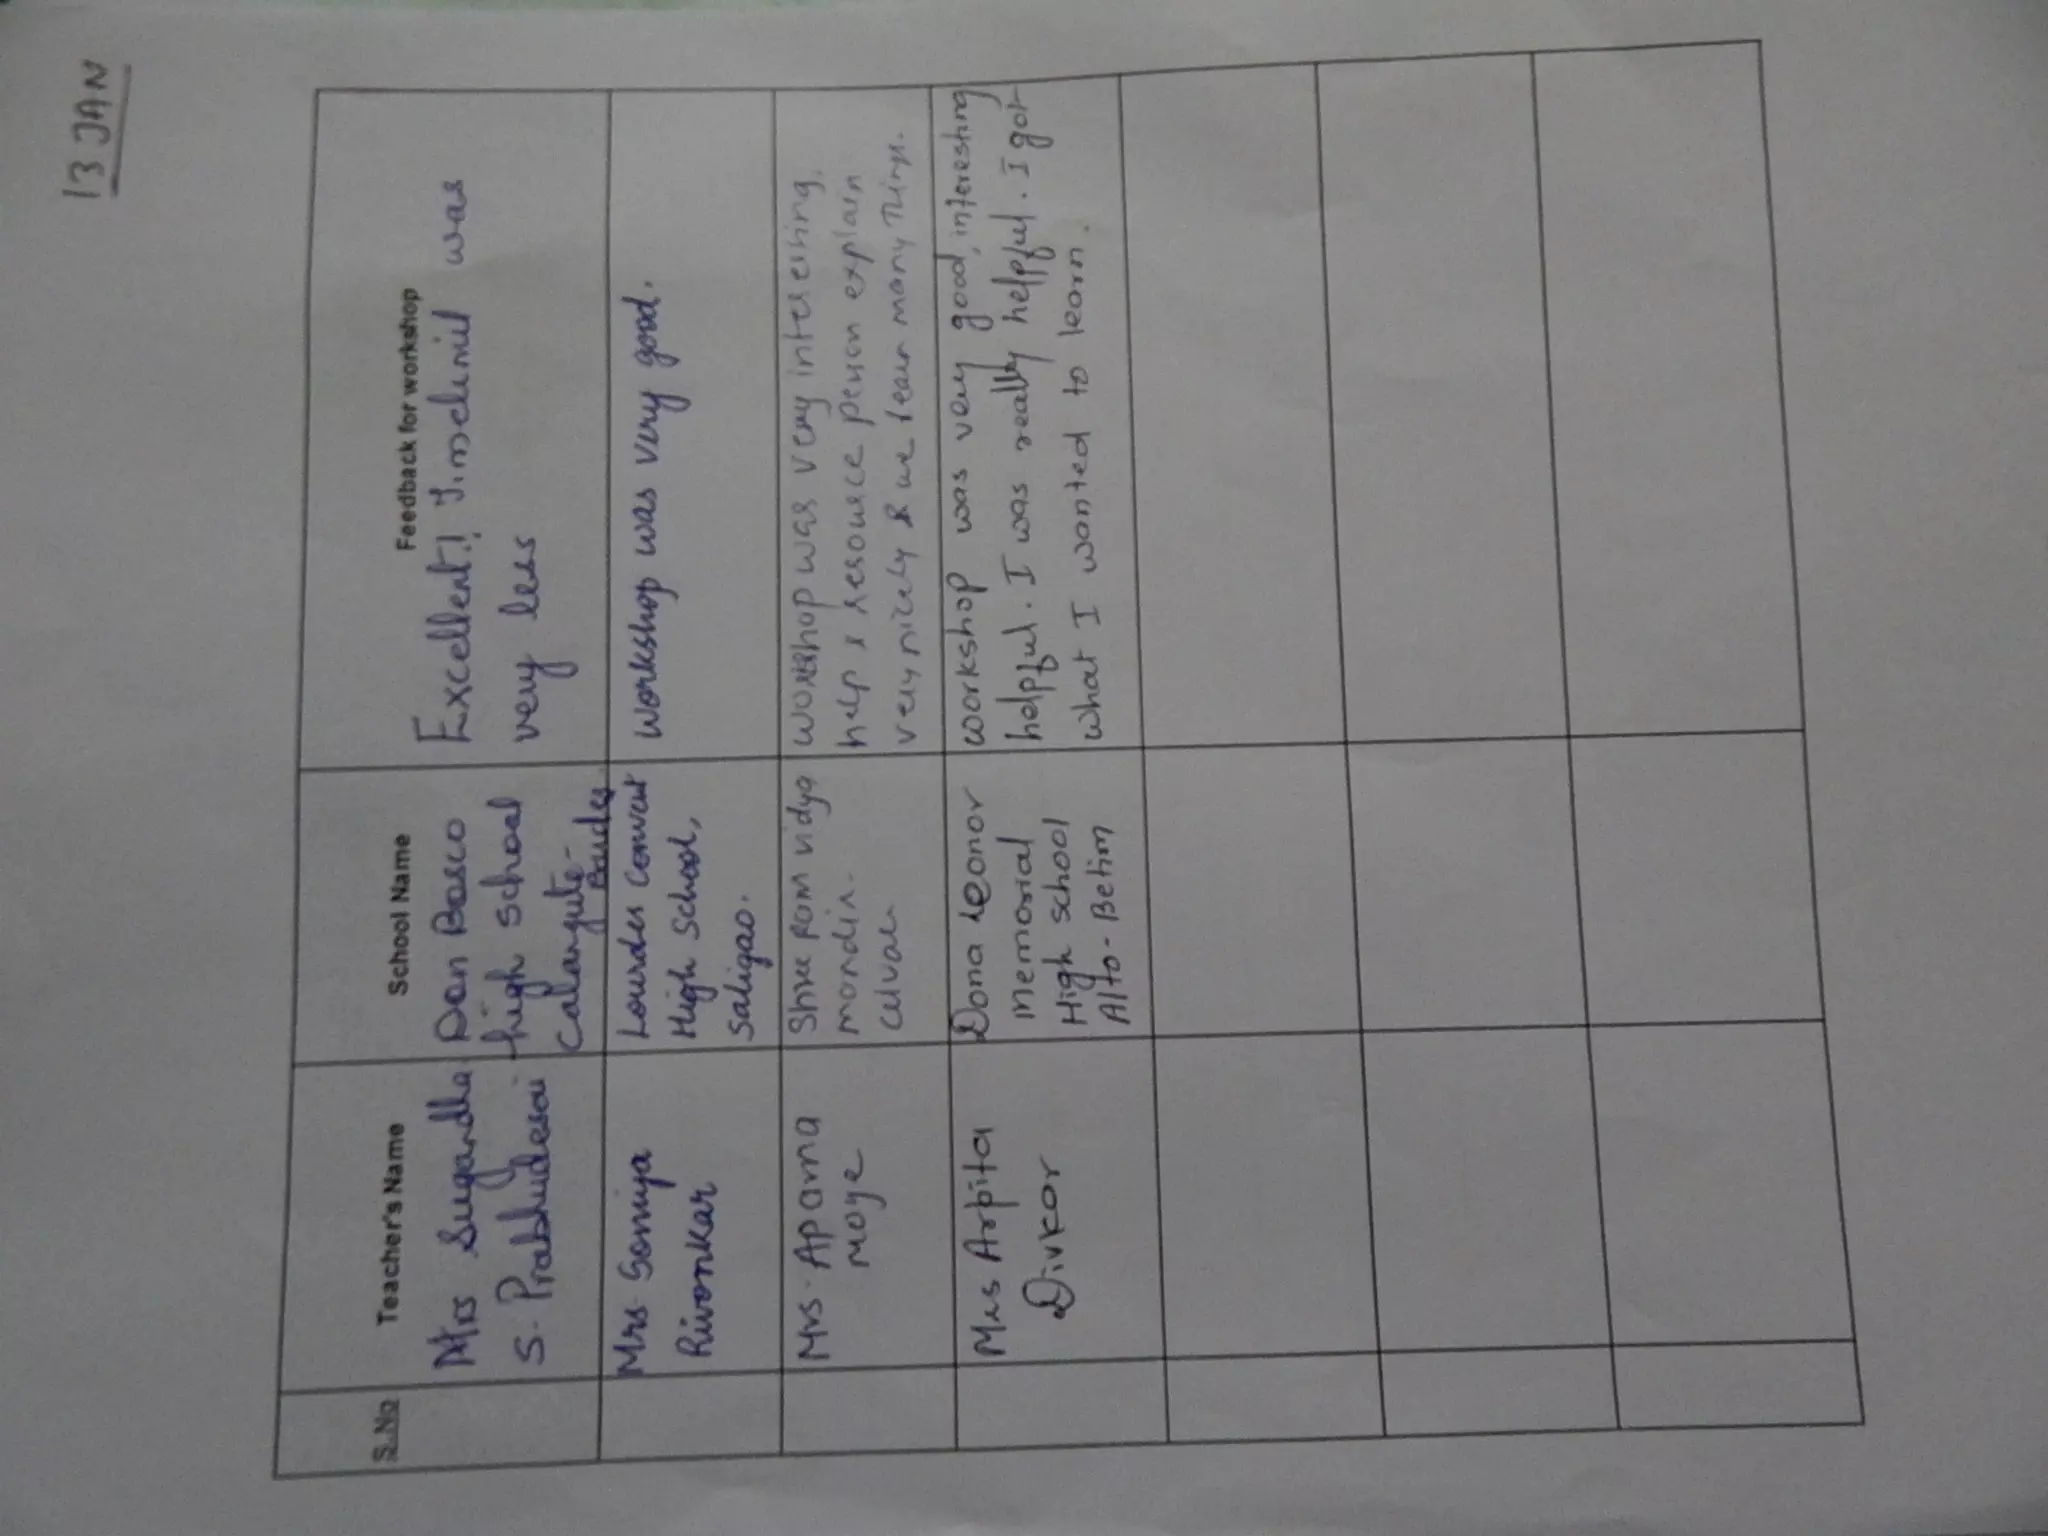 13 JAN
S.No Teacher's Name School Name Feedback for workshop
Mrs Sugandha
S. Prabhudesai
Don Bosco
high school
Calangute-
Bardez
Excellent! Timelimit was
very less
Mrs. Soniya
Rivonkar
Lourdes Convent
High School,
Saligao.
Workshop was very good.
Mrs. Aparna
Moye
Shree Ram vidya
mandir.
workshop was very interesting,
help & resource person explain
very nicely & we learn many things.
Mrs Arpita
Divkar
Dona Leonor
Memorial
High school
Alto-Betim
workshop was very good, interesting
helpful. I was really helpful. I got
what I wanted to learn.